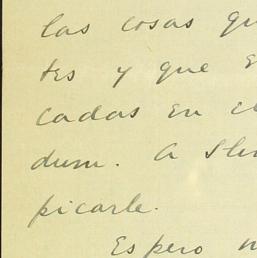 las cosas qu
tes y que e
cadas en cl
dum. A Sh
picarle.
Espero n